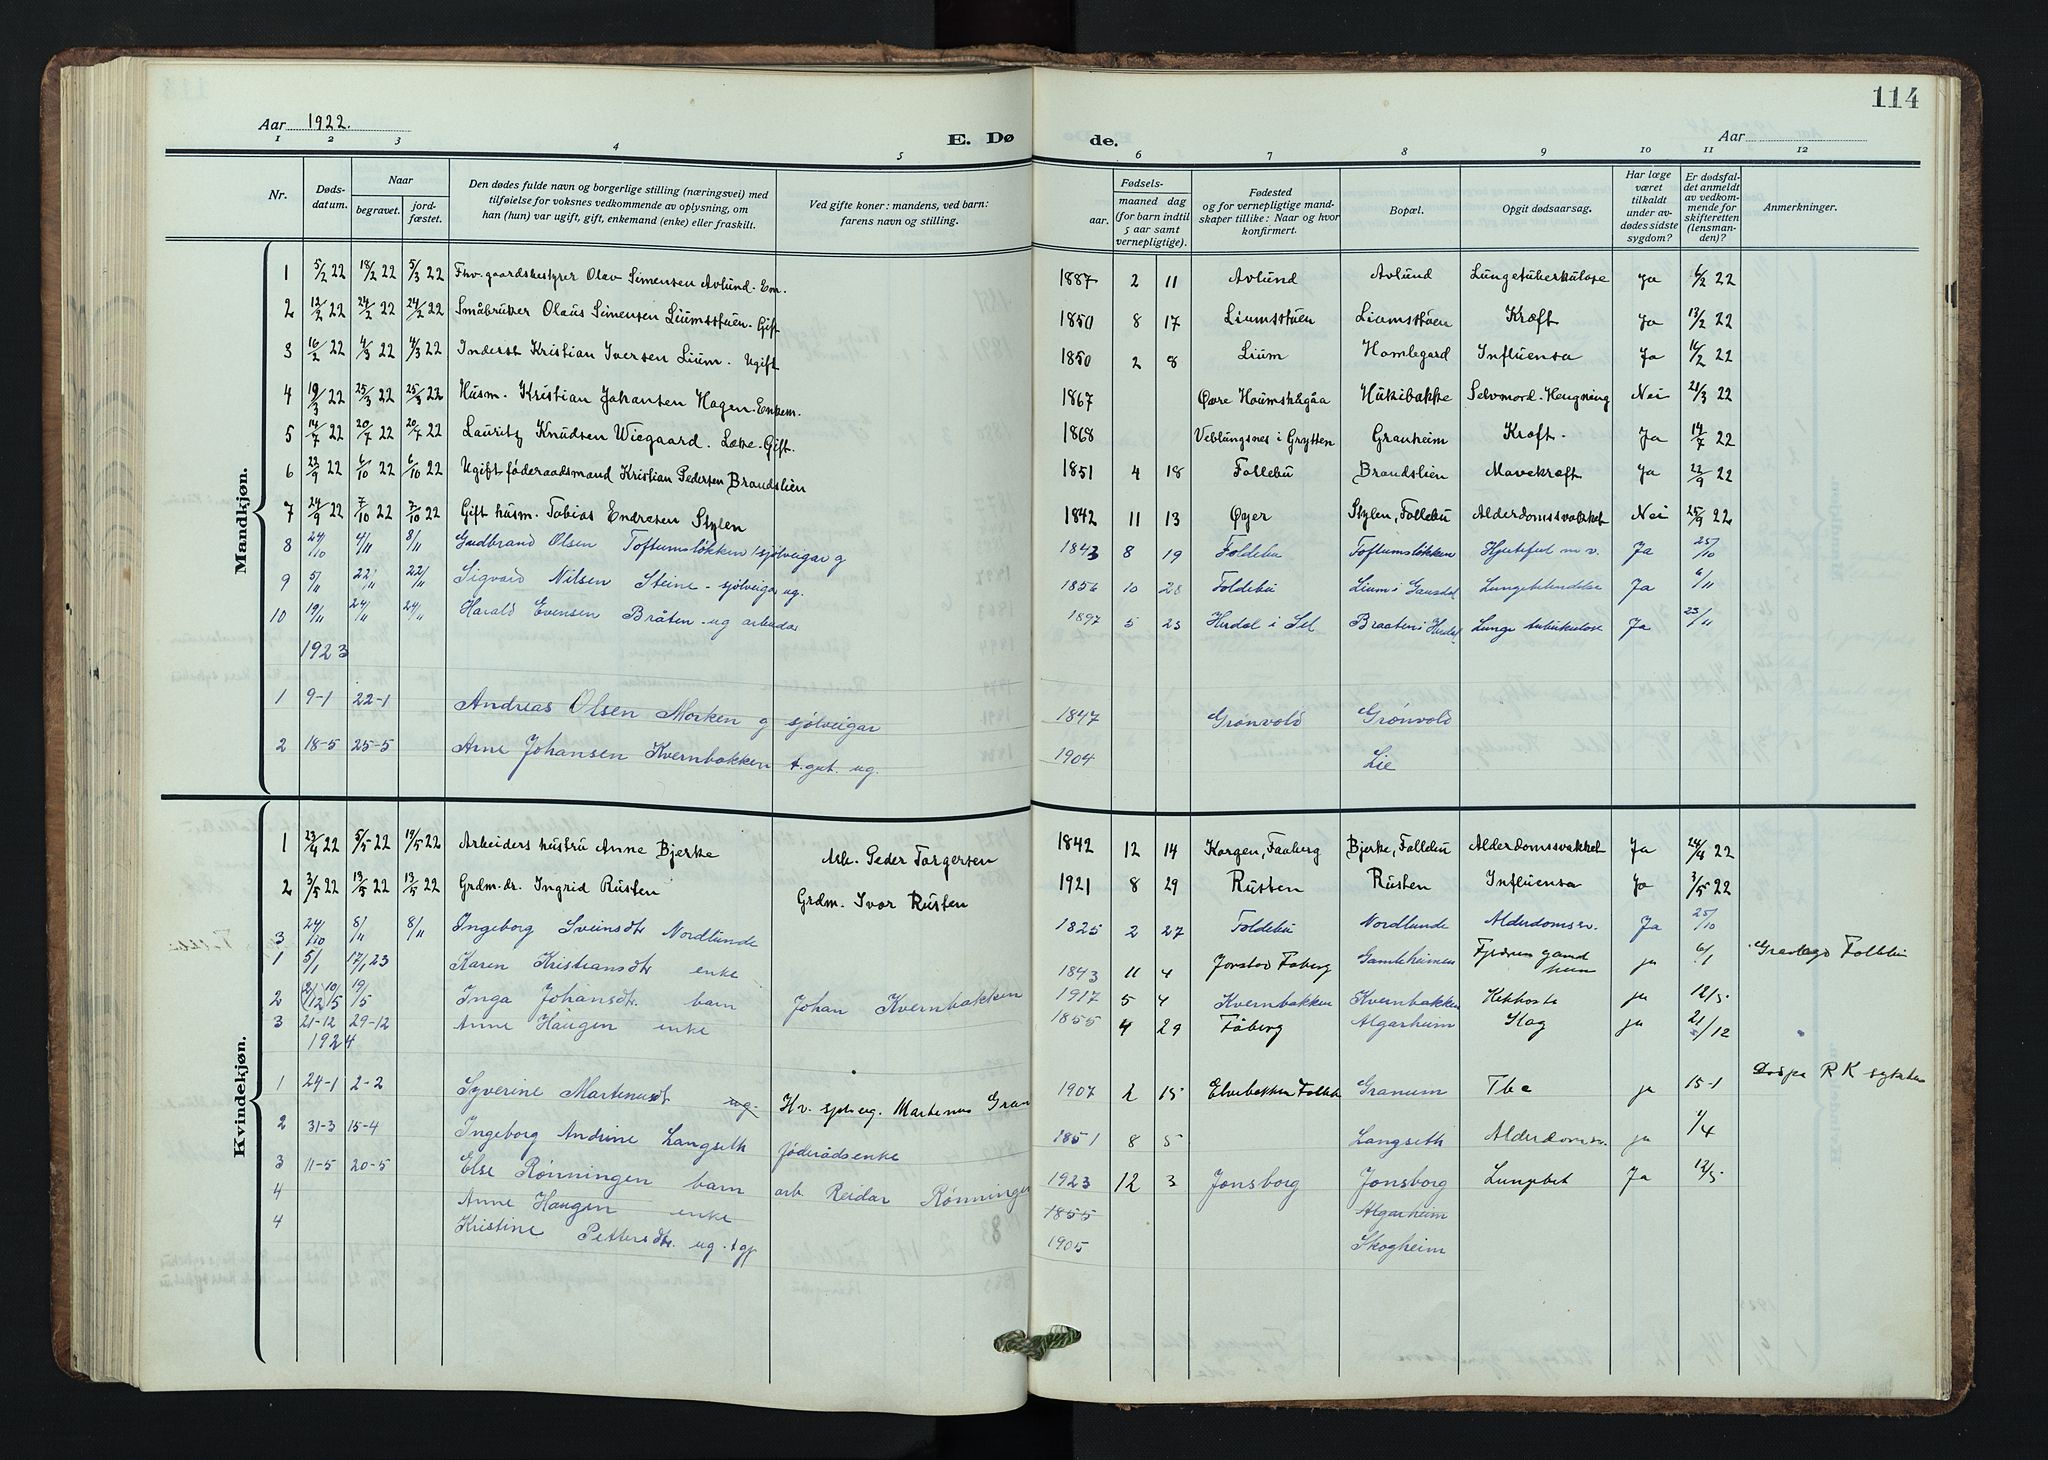 114
Aar 1922.
E. Dø de.
Aar
1 2 3 4 5 6 7 8 9 10 11 12
Nr.
Døds-datum.
Naar
begravet.
jord-fæstet.
Den dødes fulde navn og borgerlige stilling (næringsvei) med tilføielse for voksnes vedkommende av oplysning, om han (hun) var ugift, gift, enkemand (enke) eller fraskilt.
Ved gifte koner: mandens, ved barn: farens navn og stilling.
Fødsels-
aar.
maaned dag (for barn indtil 5 aar samt vernepligtige).
Fødested og for vernepligtige mandskaper tillike: Naar og hvor konfirmert.
Bopæl.
Opgit dødsaarsag.
Har læge været tilkaldt under avdødes sidste sygdom?
Er dødsfaldet anmeldt av vedkommende for skifteretten (lensmanden)?
Anmerkninger.
Mandkjøn.
1 5/2 22 18/2 22 5/3 22 Fhv. gaardsbestyrer Olav Simensen Avlund. Em. 1887 2 11 Avlund Avlund Lungetuberkulose Ja 6/2 22
2 12/2 22 24/2 22 24/2 22 Småbruker Olaus Simensen Liumsstuen. Gift 1850 8 17 Liumsstuen Liumsstuen Kræft Ja 13/2 22
3 16/2 22 4/3 22 4/3 22 Inderst Kristian Iversen Lium. Ugift 1850 2 8 Lium Homlegard Influensa Ja 16/2 22
4 19/3 22 25/3 22 25/3 22 Husm. Kristian Johansen Hagen. Enkem. 1867 Øvre Haumskågåa Hukibakke Selvmord. Hengning Nei 21/3 22
5 14/7 22 20/7 22 20/7 22 Lauritz Knudsen Wiegaard. Læge. Gift. 1868 Veblungsnes i Grytten Granheim Kræft. Ja 14/7 22
6 22/9 22 6/10 22 6/10 22 Ugift føderaadsmand Kristian Pedersen Brandslien 1851 4 18 Follebu Brandslien Mavekræft Ja 22/9 22
7 24/9 22 7/10 22 7/10 22 Gift husm. Tobias Endresen Stylen 1842 11 13 Øyer Stylen, Follebu Alderdomssvakhet Nei 25/9 22
8 24/10 4/11 8/11 Gudbrand Olsen Toftumsløkken sjølveigar g 1843 8 19 Foldebu Toftumsløkken Hjertefeil m v. Ja 25/10
9 5/11 22/11 22/11 Sigvard Nilsen Steine - sjølveigar ug. 1856 10 28 Foldebu Lium i Gausdal Lungebetendelse Ja 6/11
10 19/11 24/11 24/11 Harald Evensen Bråten - ug arbeidar 1897 5 23 Heidal i Sel Braaten i Heidal Lunge tuberkulose Ja 23/11
1923
1 9-1 22-1 Andreas Olsen Morken g sjølveigar 1847 Grønvold Grønvold
2 18-5 25-5 Arne Johansen Kvernbakken t.gut. ug. 1904 Lie
Kvindekjøn.
1 23/4 22 5/5 22 19/5 22 Arbeiders hustru Anne Bjerke Arb. Peder Torgersen 1842 12 14 Korgen, Faaberg Bjerke, Follebu Alderdomssvakhet Ja 24/4 22
2 3/5 22 13/5 22 13/5 22 Grdm. dr. Ingrid Rusten Grdm. Ivar Rusten 1921 8 29 Rusten Rusten Influensa Ja 3/5 22
3 24/10 8/11 8/11 Ingeborg Sveinsdtr Nordlunde 1825 2 27 Foldebu Nordlunde Alderdomssv. Ja 25/10
1 5/1 17/1 23 Karen Kristiansdtr enke 1843 11 4 Jorstad Faberg Gamleheimen ja 6/1 Follebu
2 10/5 19/5 Inga Johansdtr. barn Johan Kvernbakken 1917 5 4 Kvernbakken Kvernbakken Kikhoste ja 12/5
3 21-12 29-12 Anne Haugen enke 1855 4 29 Fåberg Algarheim Slag ja 21/12
1924
1 24-1 2-2 Syverine Martinusdt ug. sjølveig. Martenus Gran 1907 2 15 Elvebakken Follebu Granum Tbc ja 15-1
2 31-3 15-4 Ingeborg Andrine Langseth føderådsenke 1851 8 5 Langseth Alderdomsv. ja 1/4
3 11-5 20-5 Else Rønningen barn arb. Reidar Rønningen 1923 12 3 Jonsborg Jonsborg Lungebet Ja 12/5
4 Anne Haugen enke 1855 Algarheim
4 Kristine Pettersdtr. ug. tgj 1905 Skogheim